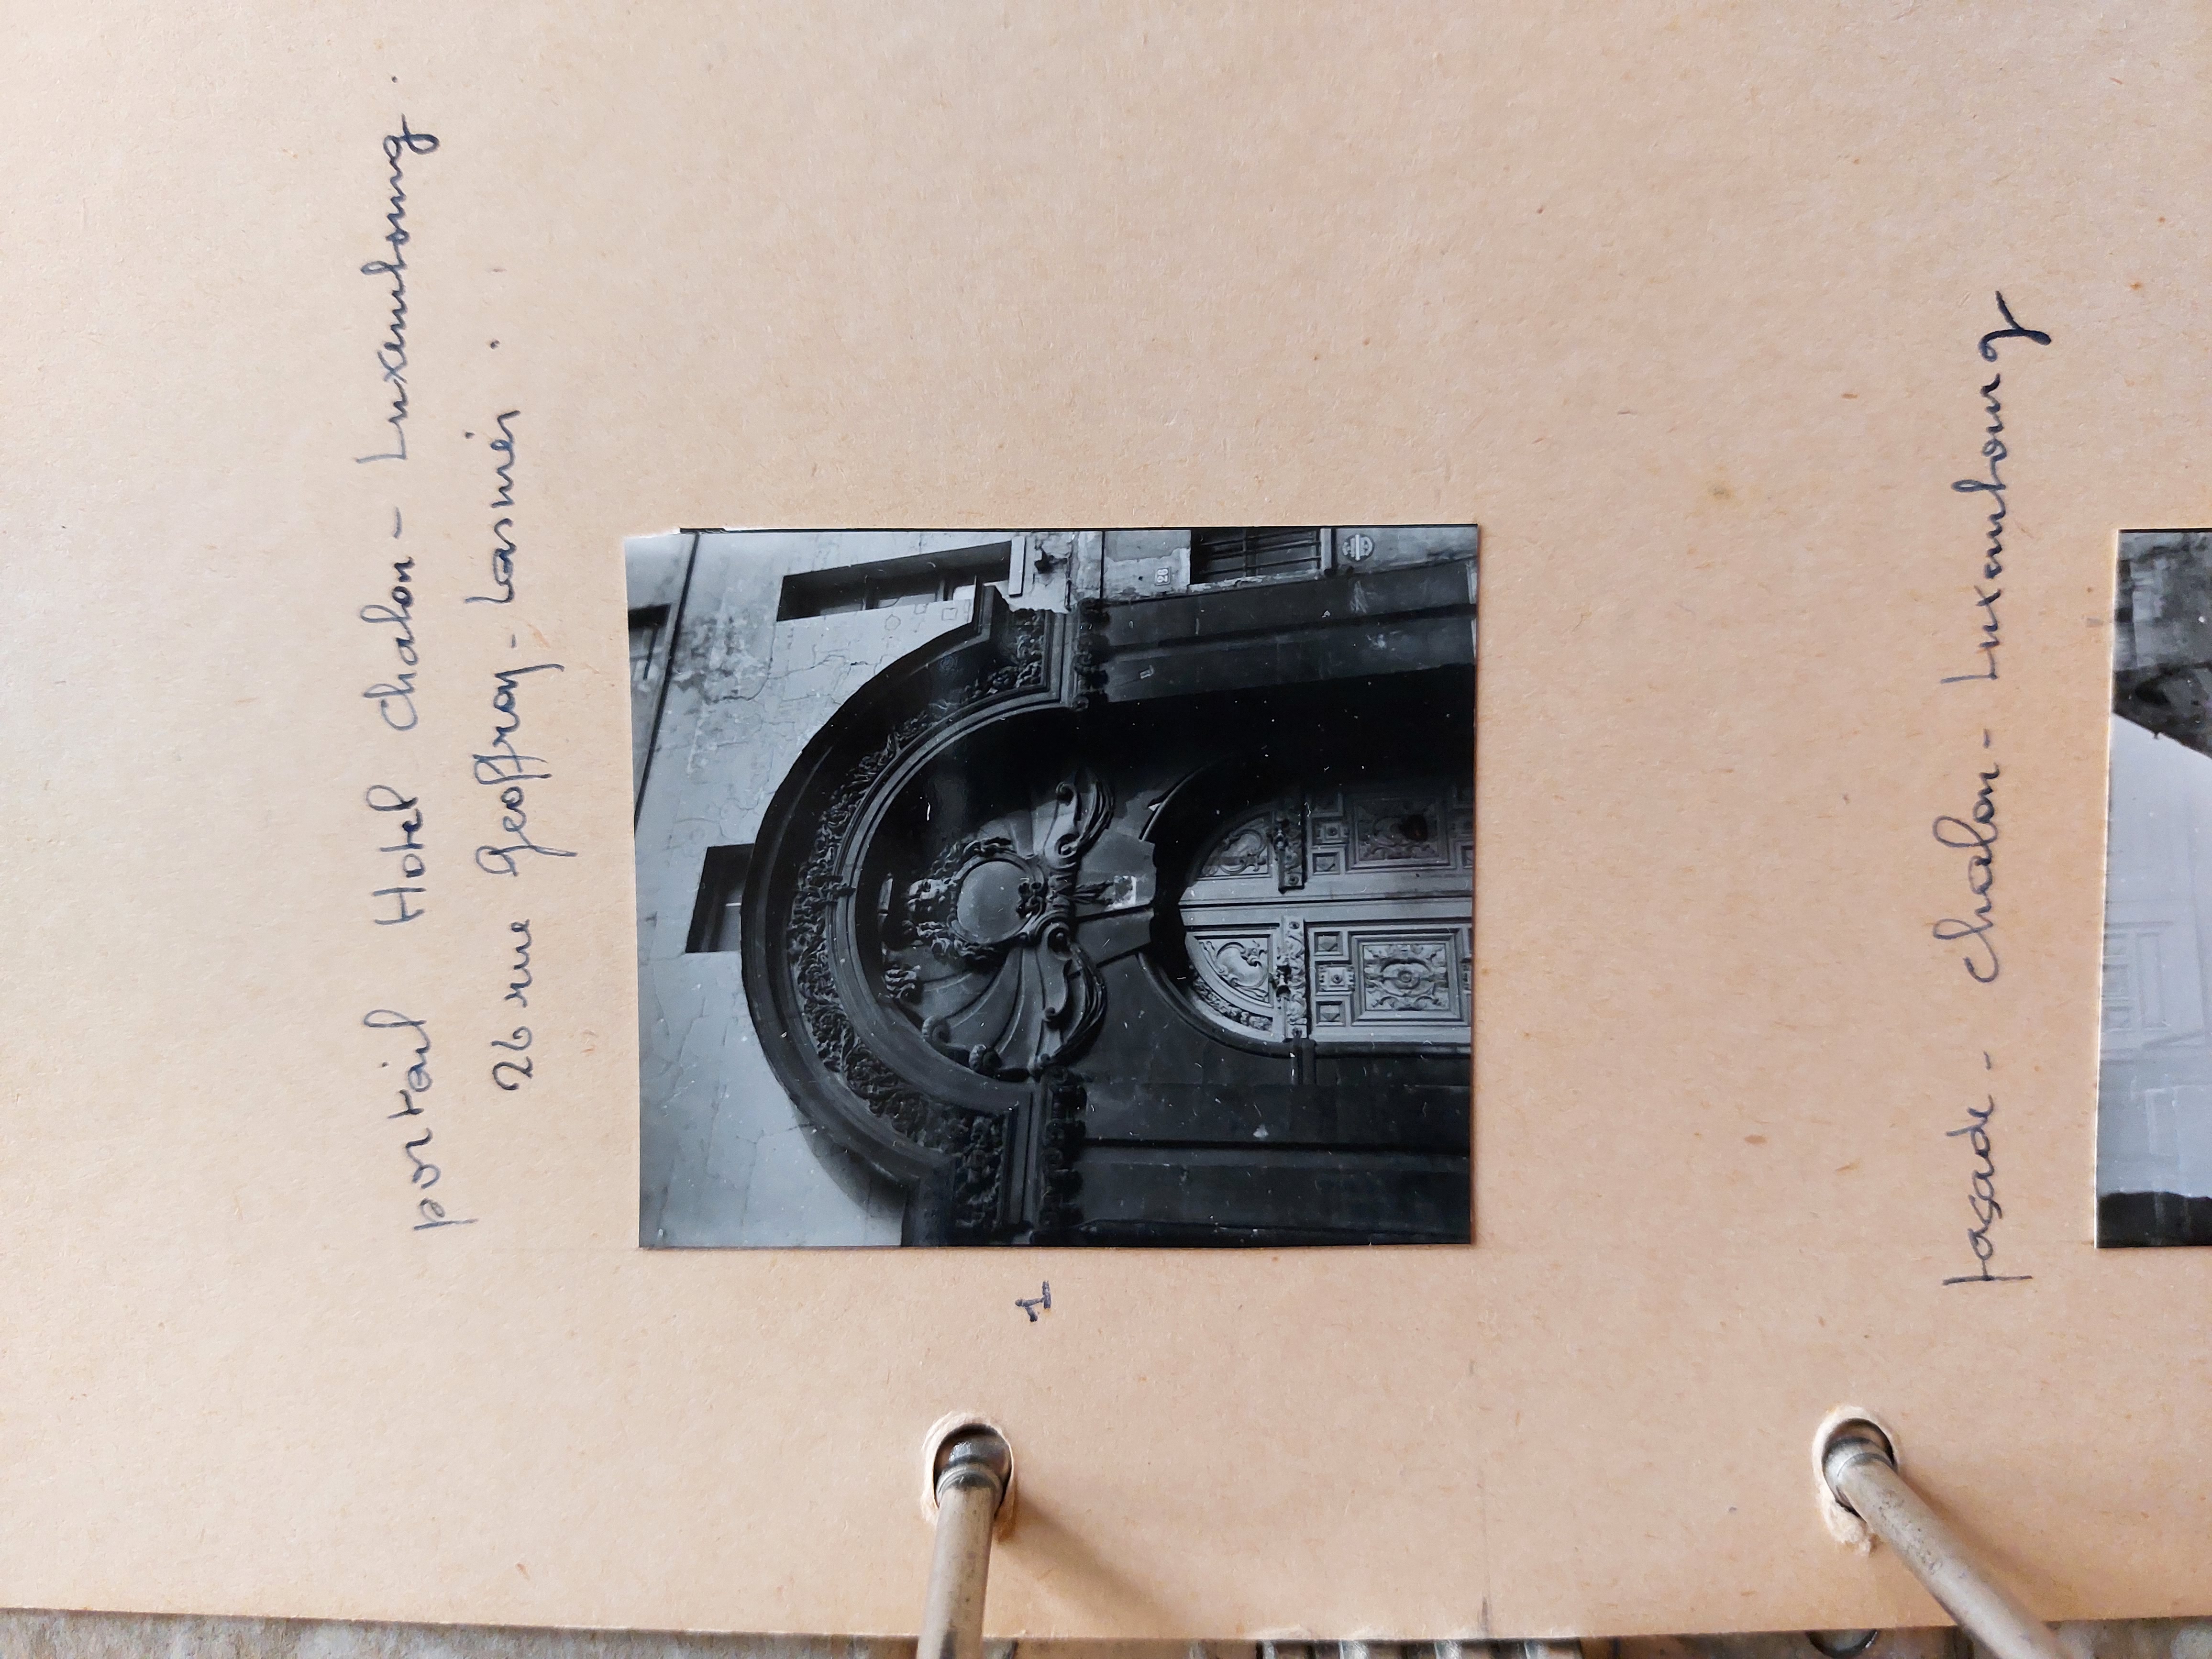 portail Hotel Chalon - Luxembourg.
26 rue Geoffroy - Lasnier.
1
26
façade - Chalon - Luxembourg